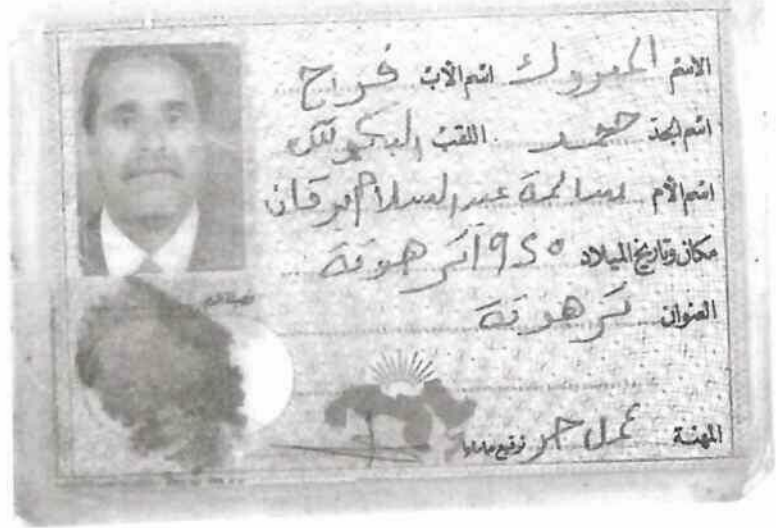 الاسم المبروك اسم الأب فرج
اسم الجد حمد اللقب
اسم الأم سالمة عبدالسلام
مكان وتاريخ الميلاد 1950 ترهونة
العنوان ترهونة
المهنة عمل حر توقيع حاملها